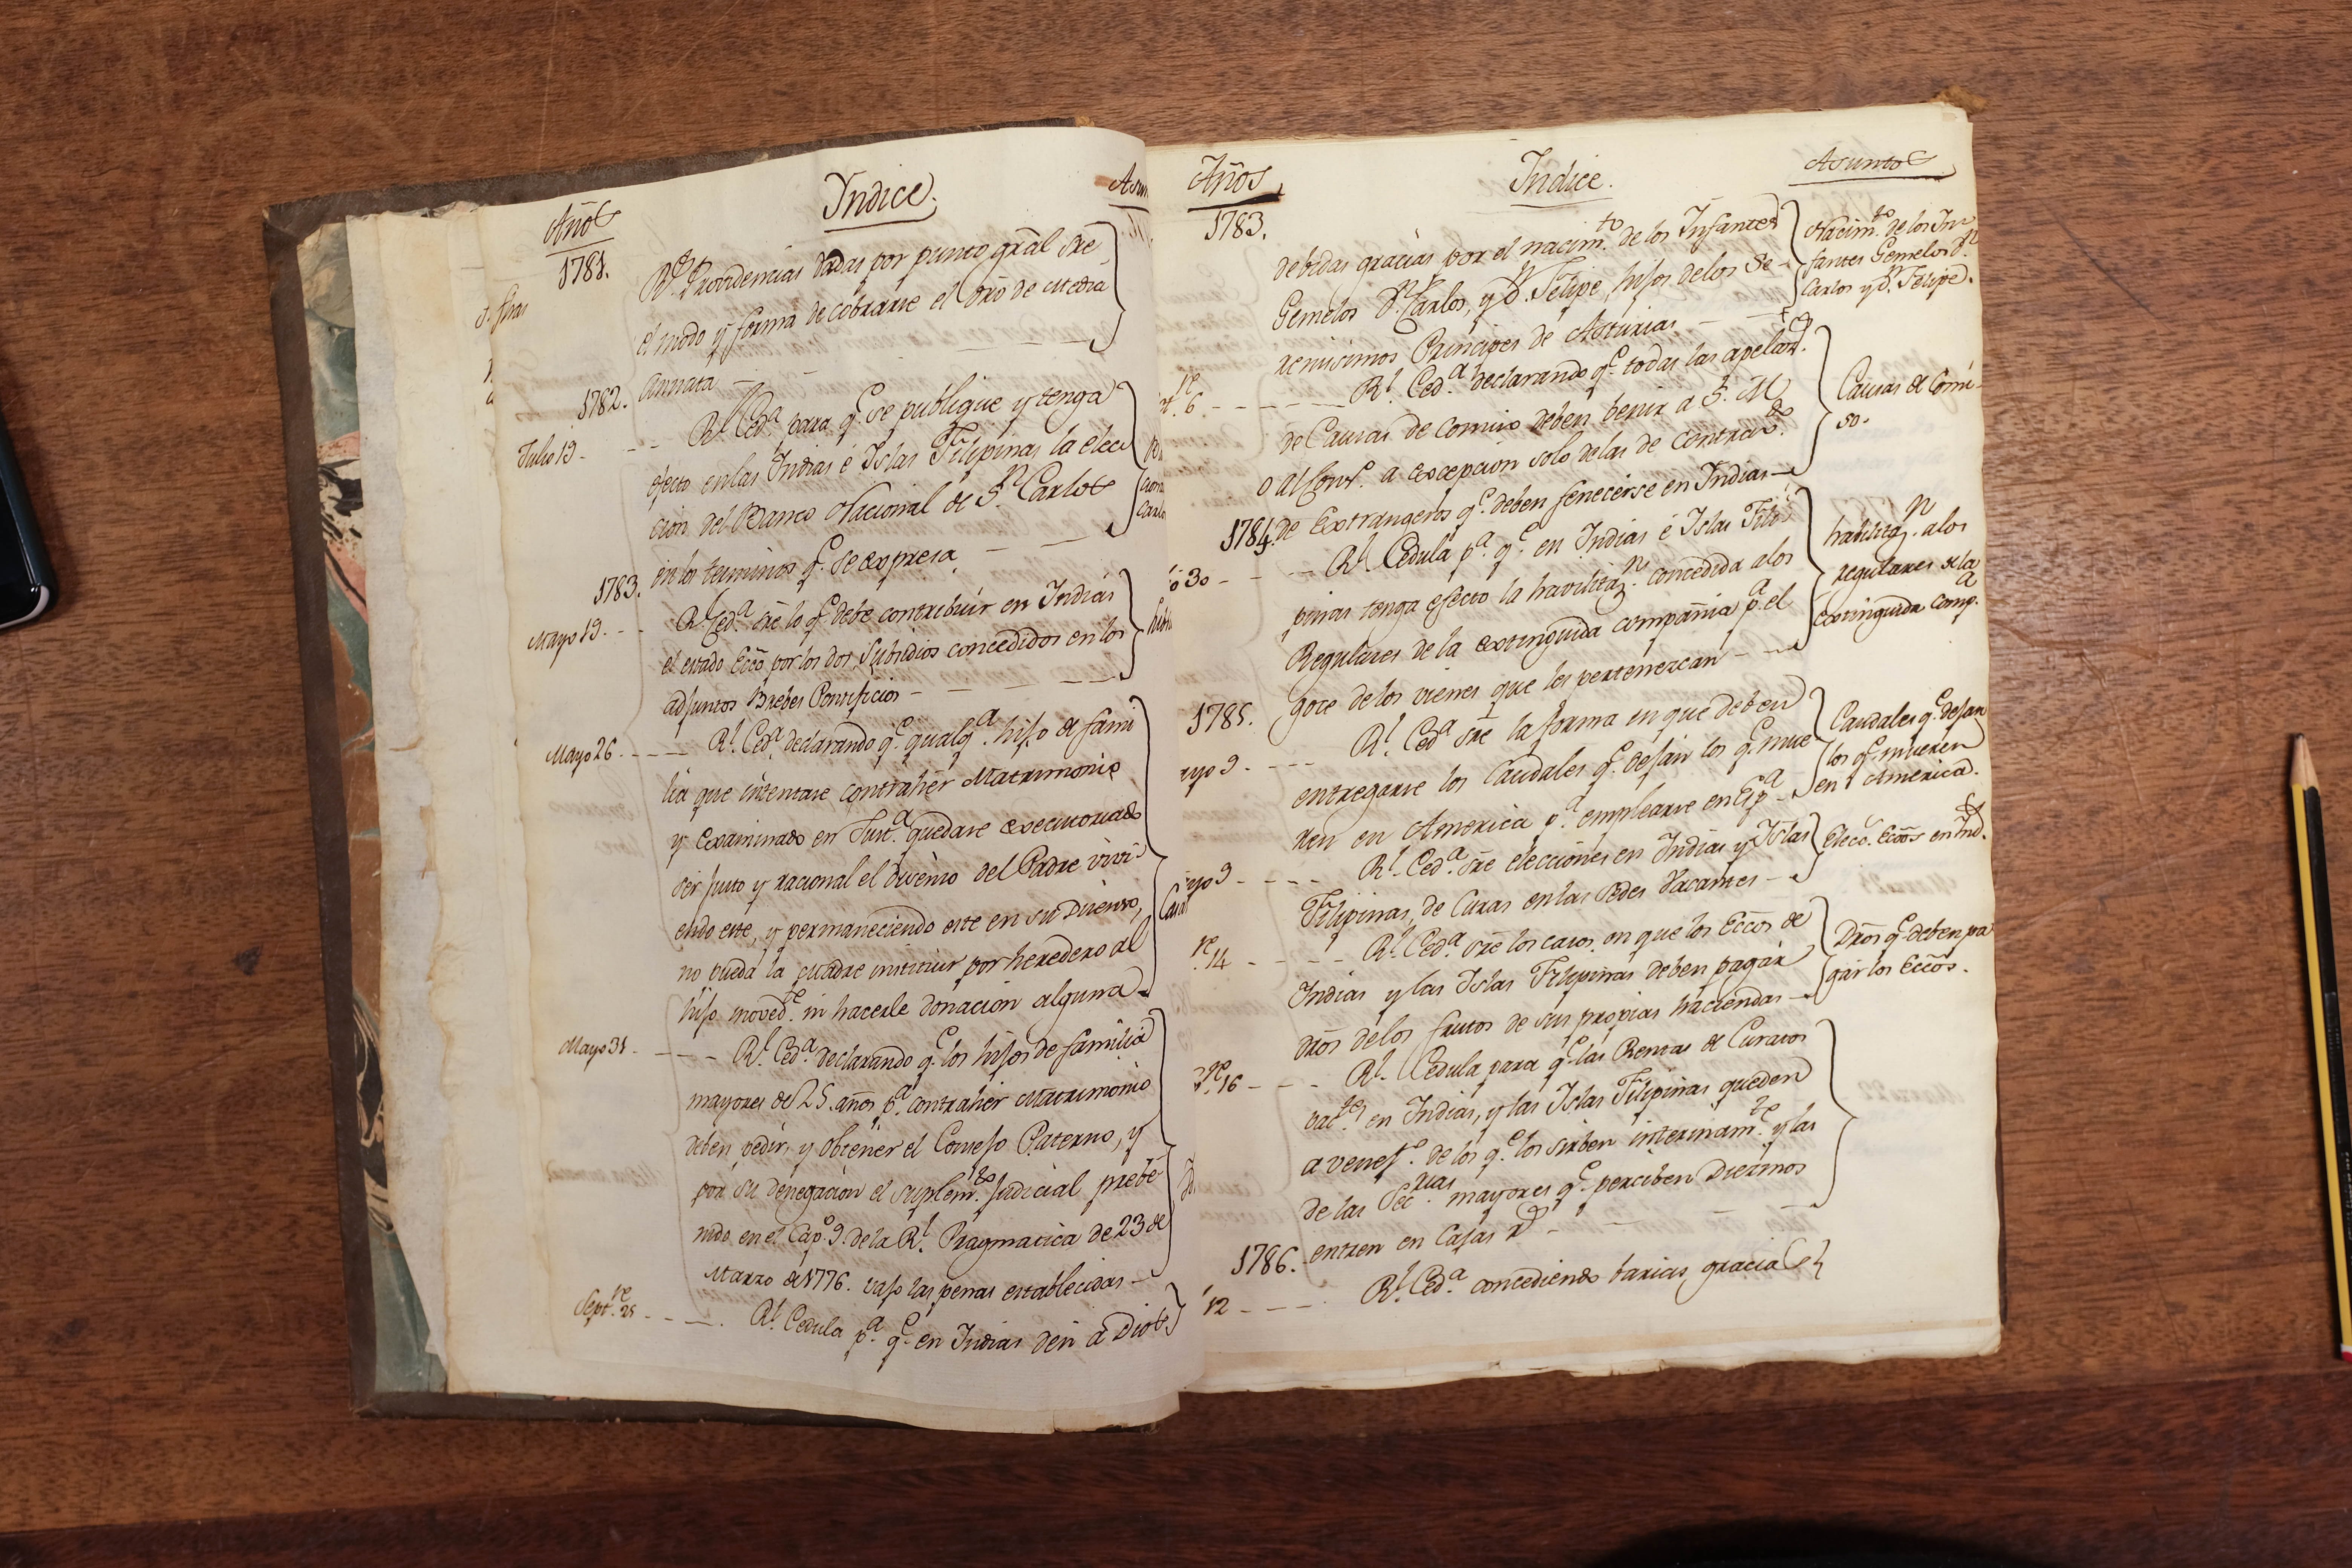 Años
Indice.
1781.
Rs. Providencias dadas por punto grãl sre
el modo y forma de cobrarse el dro de Media
Annata
1782.
Julio 19. Rl. Ceda. para qe. se publique y tenga
efecto en las Indias é Islas Filipinas la elec
cion del Banco Nacional de Sn. Carlos
en los terminos qe. se expresa.
1783.
Mayo 19. Rl. Ceda. sre lo qe. debe contribuir en Indias
el estado Ecco. por los dos subsidios concedidos en los
adjuntos Brebes Pontificios
Mayo 26. Rl. Ceda. declarando qe. qualqa. hijo de fami
lia que intentare contraher Matrimonio
y examinado en Justa. quedare executoriado
ser justo y racional el disenso del Padre vivi
endo este, y permaneciendo este en su Disenso,
no pueda la Madre instituir por heredero al
hijo inoved.e in hacerle donacion alguna
Mayo 31. Rl. Ceda. declarando qe. los hijos de familia
mayores de 25. años pa. contraher Matrimonio
deben pedir, y obtener el Consejo Paterno, y
por su denegacion el suplemto. Judicial prebe
nido en el Capo. 9. de la Rl. Pragmatica de 23 de
Marzo de 1776. vajo las penas establecidas
Septre. 21. Rl. Cedula pa. qe. en Indias den á Dios
Años
Indice.
Asuntos
1783.
debidas gracias por el nacimto. de los Infantes
Gemelos Dn. Carlos, y Dn. Felipe, hijos de los Se-
renisimos Principes de Asturias
Nacimto. de los In
fantes Gemelos Dn.
Carlos y Dn. Felipe.
re. 6. Rl. Ceda. declarando qe. todas las apelacs.
de Causas de comiso deben benir a S. M.
o al Consº. a excepcion solo de las de Contravdo.
de Extrangeros qe. deben fenecerse en Indias
Causas de Comi-
so.
1784.
30 Rl. Cedula pa. qe. en Indias é Islas Fili
pinas tenga efecto la havilitazn. concedida a los
Regulares de la extinguida compañia pa. el
goce de los vienes que les pertenezcan
havilitazn. a los
regulares de la
extinguida Compa.
1785.
ayo 9. Rl. Ceda. sre la forma en que deben
entregarse los Caudales qe. dejan los qe. mue
ren en America pa. emplearse en Espa.
Caudales qe. dejan
los qe. mueren
en America.
ayo 9 Rl. Ceda. sre elecciones en Indias y Islas
Filipinas, de Curas en las Sedes Vacantes
Elecs. Eccos en Ind.s
re. 14 Rl. Ceda. sre los casos en que los Eccos de
Indias y las Islas Filipinas deben pagar
dros de los frutos de sus propias haciendas
Dros qe. deben pa
gar los Eccos.
re. 16 Rl. Cedula para qe. las Rentas de Curatos
vactes. en Indias, y las Islas Filipinas queden
a venefo. de los qe. los sirben interinamte. y las
de las Secrias. mayores qe. perciben Diezmos
entren en Cajas Rs
1786.
12 Rl. Ceda. concediendo varias gracias